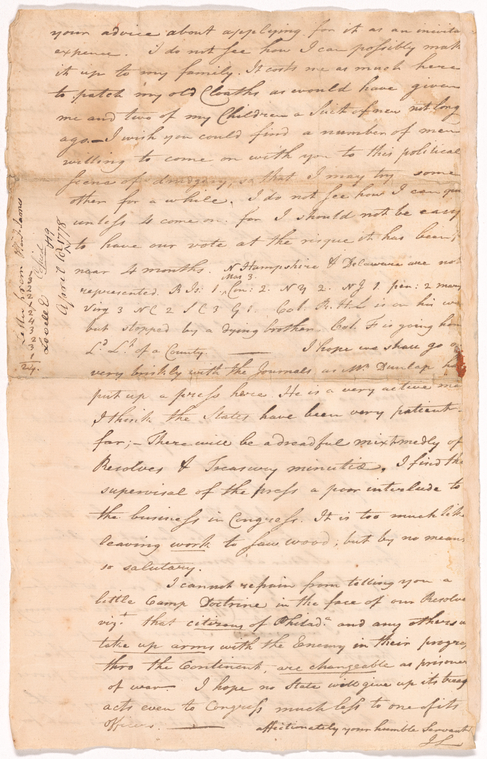 your advice about applying for it as an invita
expence. I do not see how I can possibly make
it up to my family. It costs me as much here
to patch my old Cloaths as would have given
me and two of my Children a Suit of new not long
ago. — I wish you could find a number of men
willing to come on with you to this political
scene of drudgery, so that I may try some
other for a while. I do not see how I can
unless 4 come on: for I should not be easy
to have our vote at the risque it has been,
near 4 months. N Hampshire & Delaware are not
Mas 3.
represented, R Is: 1, Con: 2. N Y 2. N J 1 pen: 2 mary
Virg 3 N C 2 S C 3 G 1. Col. R. H. L is on his
but stopped by a dying brother. Col. F is going
Lt. of a County. — I hope we shall go
very briskly with the Journals as Mr Dunlap
put up a press here. He is a very active
I think the States have been very patient
far; — There will be a dreadful mixtmedly of
Resolves & Treasury minutiæ. I find the
supervisal of the press a poor interlude to
the business in Congress. It is too much like
leaving work to saw wood; but by no means
so salutary.
I cannot refrain from telling you a
little Camp Doctrine in the face of our Resolve
vizt. that citizens of Philada. and any others
take up arms with the Enemy in their progress
thro the Continent, are changeable as prisoners
of war — I hope no State will give up its
acts even to Congress much less to one of its
Officers. — affectionately your humble Servant
J L
Letter from
Lovell
April 16 1778